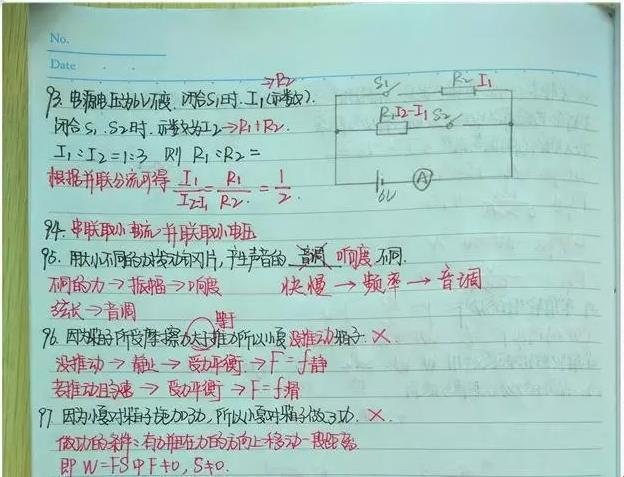 No.
Date
→R2
93. 电源电压为6V不变, 闭合S1时. I1(示数).
闭合S1. S2时. 示数为I2→R1+R2.
I1:I2=1:3 则 R1:R2=
根据并联分流可得 I1/I2-I1 = R1/R2 = 1/2.
S1 R2 I1
R1 I2-I1 S2
6V A
94. 串联取小电流,并联取小电压
95. 用大小不同的力拨动钢片,产生声音的 音调 响度 不同.
不同的力→振幅→响度 快慢→频率→音调
弦长→音调
等于
96. 因为箱子所受摩擦力大于推力所以小夏没推动箱子. ×
没推动→静止→受力平衡→F=f静
若推动且匀速→受力平衡→F=f滑
97. 因为小夏对箱子施加了力, 所以小夏对箱子做了功. ×.
做功的条件:有力并在力的方向上移动一段距离
即 W=FS中F≠0, S≠0.